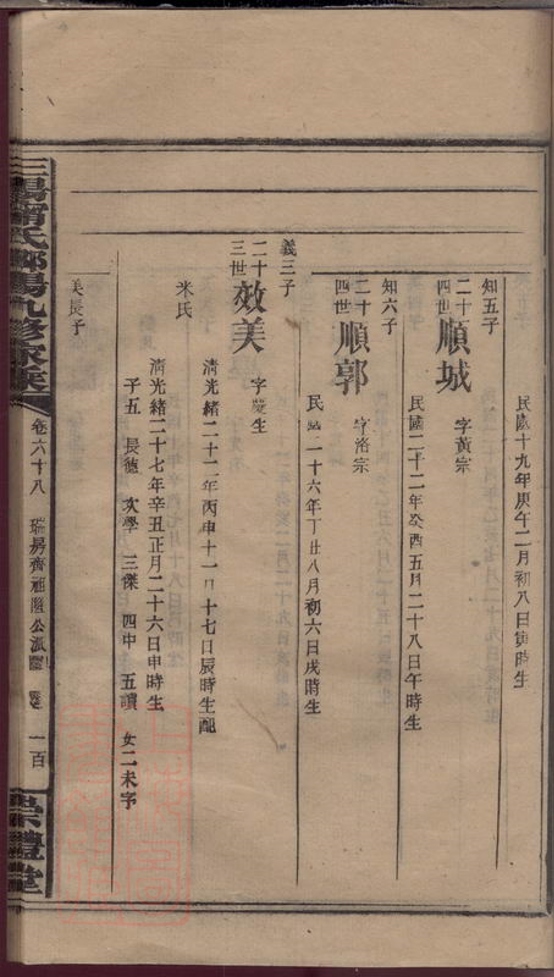 民國十九年庚午二月初八日寅時生
知五子
二十四世 順城 字黃宗
民國二十二年癸酉五月二十八日午時生
知六子
二十四世 順郭 字洛宗
民國二十六年丁丑八月初六日戌時生
義三子
二十三世 效美 字慶生
清光緒二十二年丙申十一月十七日辰時生配
米氏
清光緒二十七年辛丑正月二十六日申時生
子五 長德 次學 三傑 四中 五讀 女二未字
美長子
三陽 氏 陽九修家
卷六十八 瑞房齊祖隆公派 一百
崇禮堂